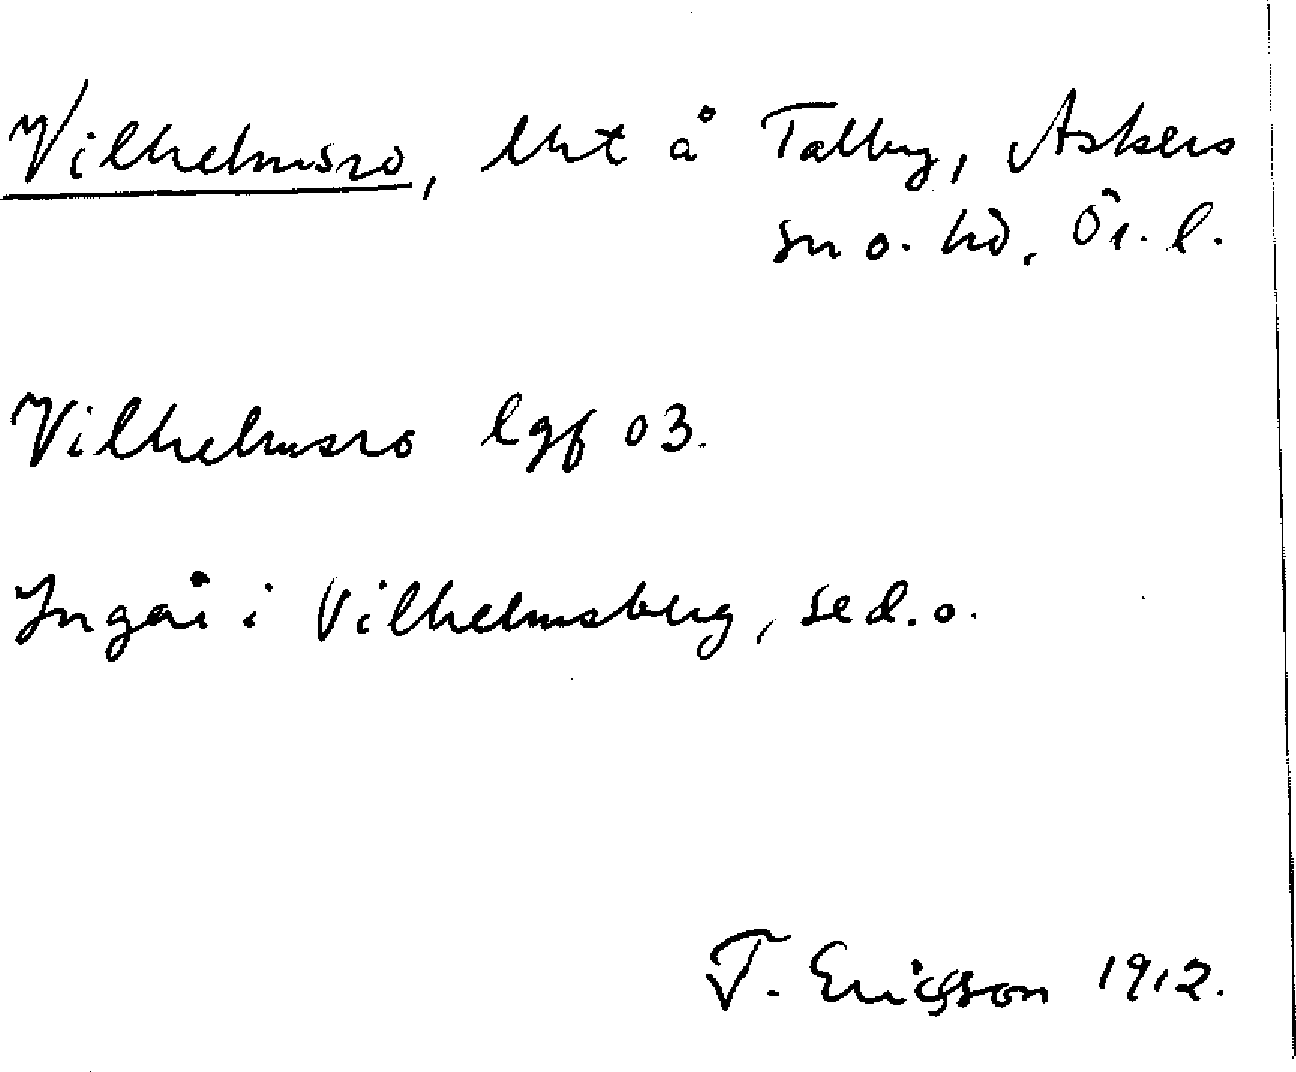 Vilhelmsro, lht å Tälby, Askers
sn o. hd, Ör. l.
Vilhelmsro lgf 03.
Ingår i Vilhelmsberg, se d. o.
T. Ericsson 1912.